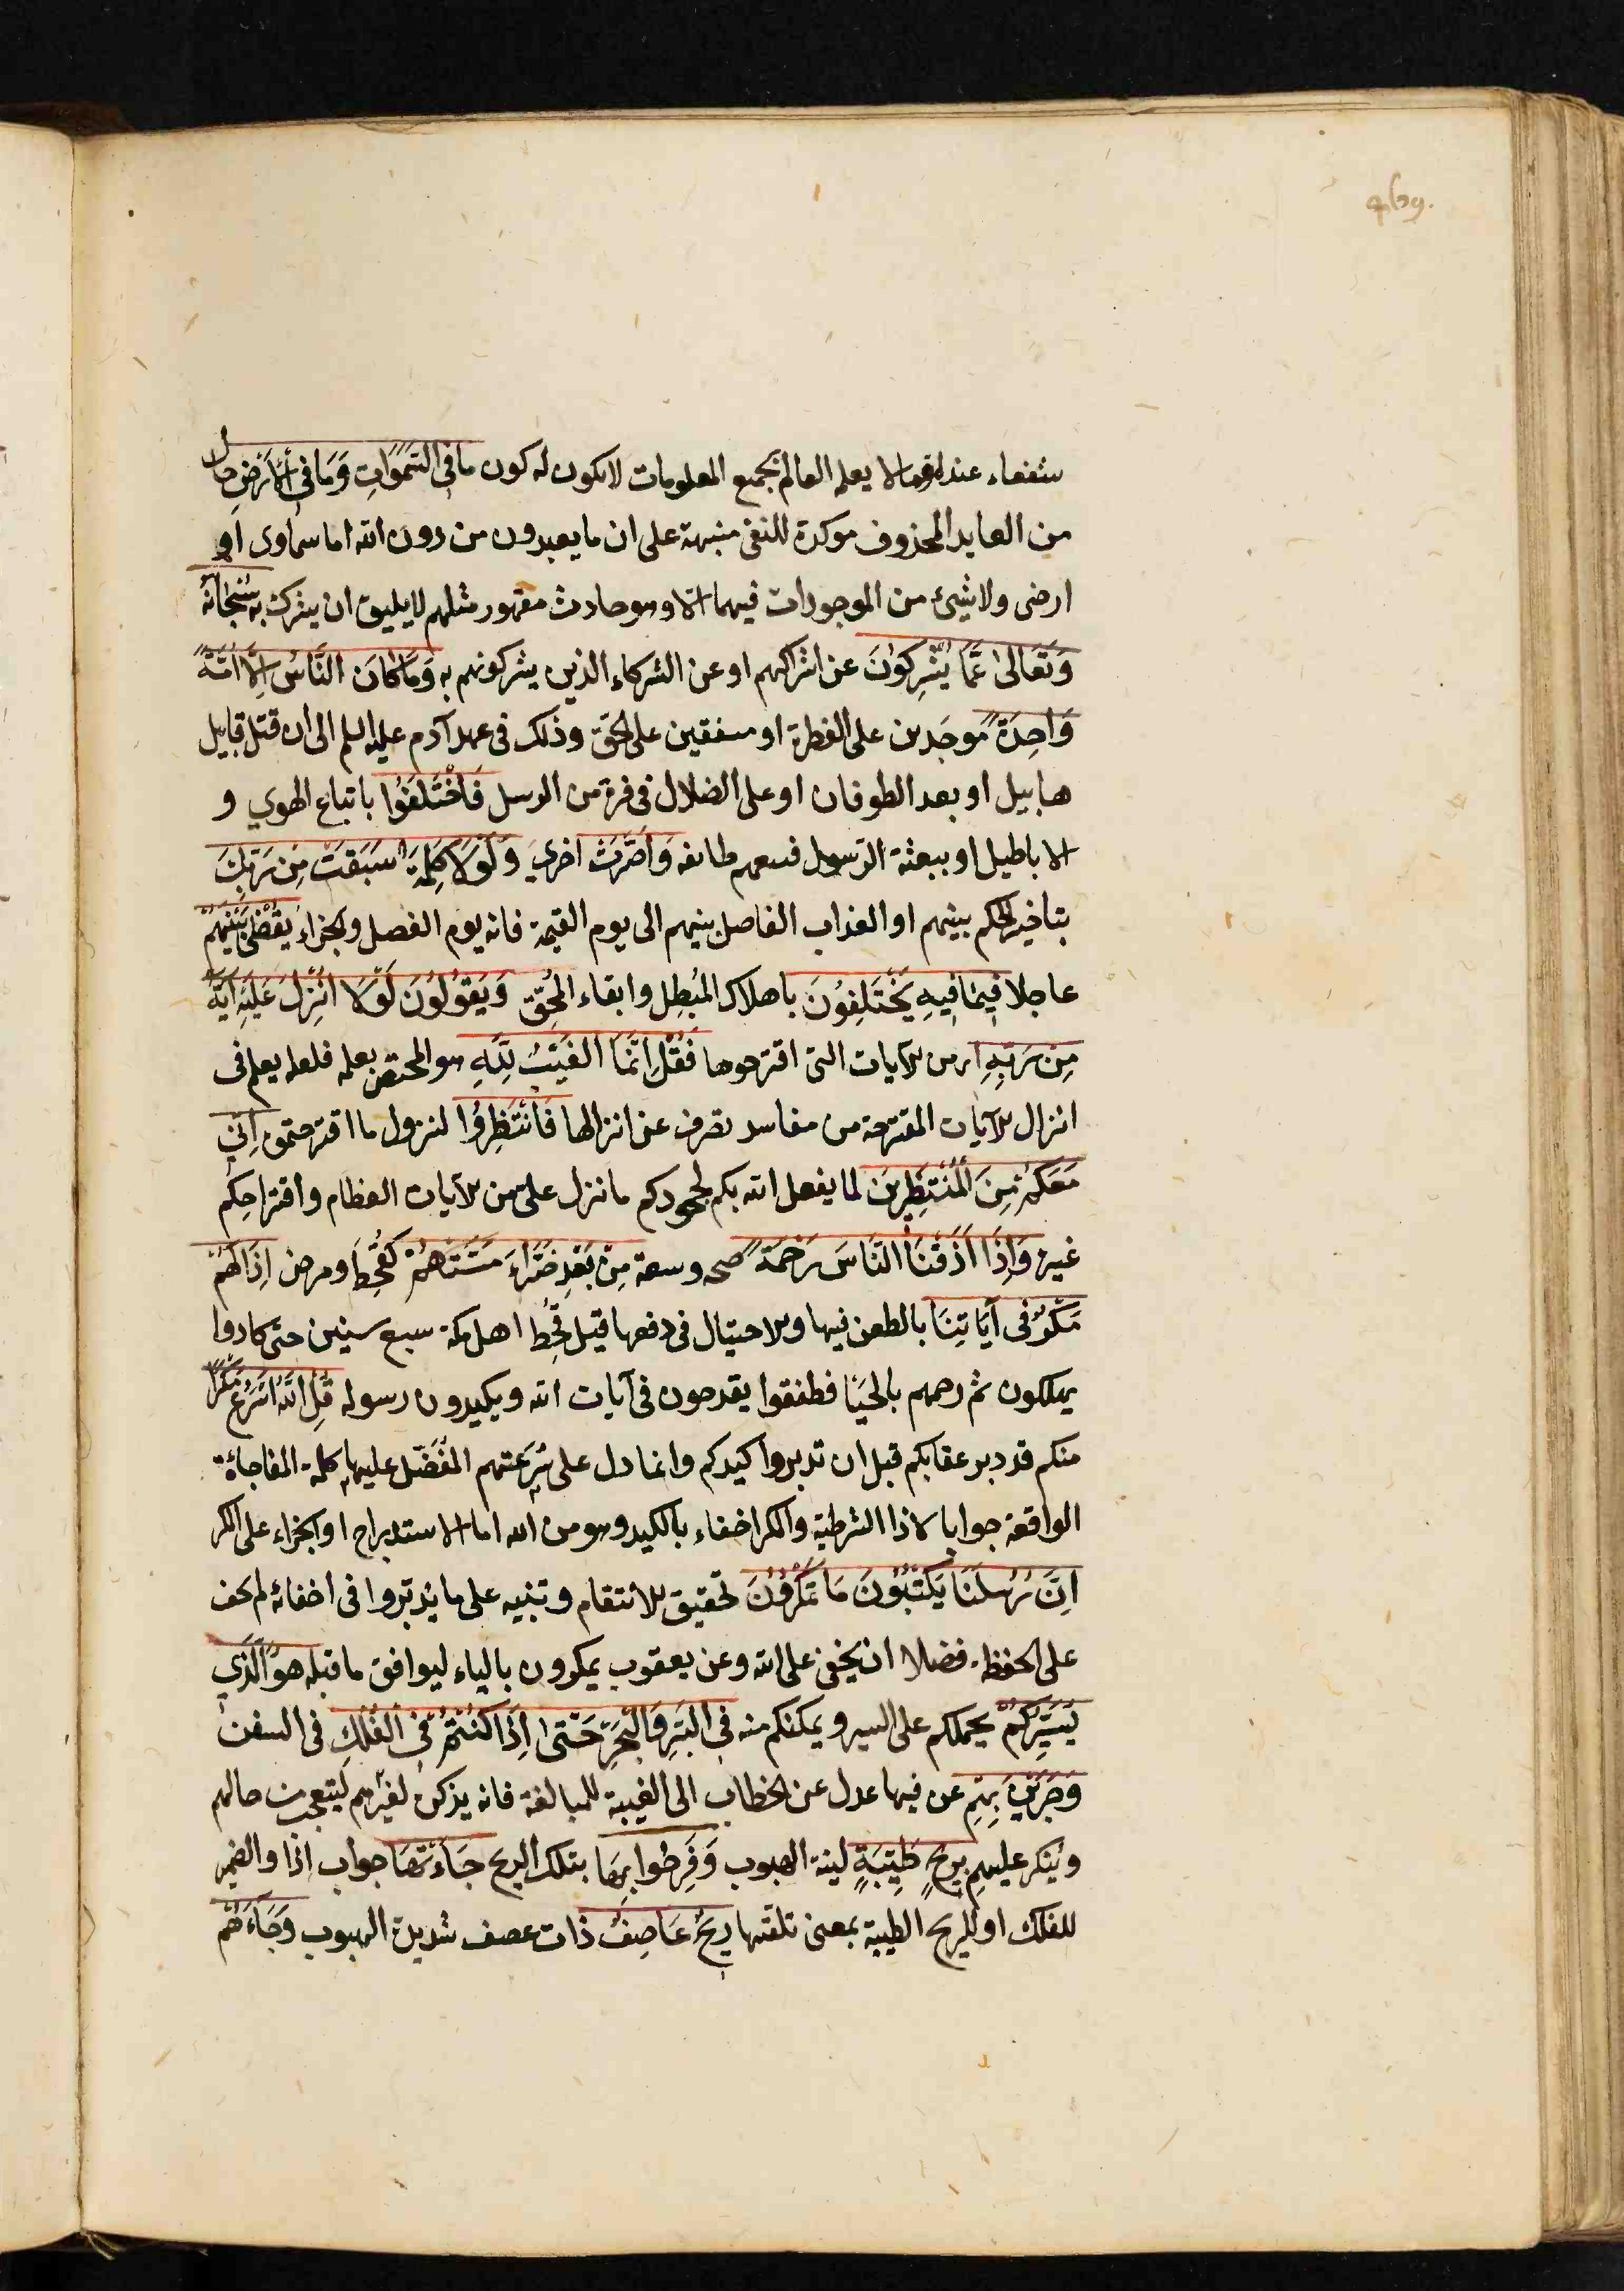 469.
شفعاء عند الله وما لا يعلمه العالم بجميع المعلومات لا يكون له كون ما فِى السَّمٰوَاتِ وَمَا فِى الْاَرْضِ حال
من العايد المحذوف موكدة للنفى منبهة على ان ما يعبدون من دون الله اما سماوى او
ارضى ولا شيئ من الموجودات فيهما الا وهو حادث مقهور مثلهم لا يليق ان يشرك به سُبْحَانَهُ
وَتَعَالىٰ عَمَّا يُشْرِكُونَ عن اشراكهم او عن الشركاء الذين يشركونهم به وَمَا كَانَ النَّاسُ اِلَّا اُمَّةً
وَاحِدَةً موحدين على الفطرة او متفقين على الحق وذلك فى عهد آدم عليه السلم الى ان قتل قابيل
هابيل او بعد الطوفان او على الضلال فى فترة من الرسل فَاخْتَلَفُوا باتباع الهوي و
الاباطيل او ببعثة الرسول فتبعهم طائفه وَاَصَرَّتْ اخري وَلَوْلَا كَلِمَةٌ سَبَقَتْ مِنْ رَبِّكَ
بتاخير الحكم بينهم او العذاب الفاصل بينهم الى يوم القيمة فانه يوم الفصل والجزاء يَقُضِىَ بَيْنَهُمْ
عاجلا فِيمَا فِيهِ يَخْتَلِفُونَ باهلاك المُبْطِل وابقاء المُحِقّ وَيَقُولُونَ لَوْلَا اُنْزِلَ عَلَيْهِ اٰيَةٌ
مِنْ رَبِّهِ اى من الآيات التى اقترحوها فَقُلْ اِنَّمَا الْغَيْبُ لِلّٰهِ هو المختص بعلمه فلعله يعلم فى
انزال الآيات المقترحة من مفاسد تصرف عن انزالها فَانْتَظِرُوا لنزول ما اقترحتموه اِنِّى
مَعَكُمْ مِنَ الْمُنْتَظِرِينَ لما يفعل الله بكم لجحودكم ما نزل علىّ من الآيات العظام واقتراحِكُم
غيره وَاِذَا اَذَقْنَا النَّاسَ رَحْمَةً صحه وسعة مِنْ بَعْدِ ضَرَّاءَ مَسَّتْهُمْ كَقُحِطَ ومرض اِذَا لَهُمْ
مَكْرٌ فى اٰيَاتِنَا بالطعن فيها والاحتيال فى دفعها قيل قُحِطَ اهل مكة سبع سنين حتى كادوا
يهلكون ثم رحمهم بالحَيَا فطفقوا يقدحون فى آيات الله ويكيدون رسوله قُلِ اللّٰهُ اَسْرَعُ مَكْرًا
منكم قد دبر عقابكم قبل ان تدبروا كيدكم وانما دل على سُرعتهم المُفَضَّل عليها كلمة المفاجأة
الواقعة جوابا لاذا الشرطية والمكر اخفاء بالكيد وهو من الله اما الاستدراج او الجزاء على المكر
اِنَّ رُسُلَنَا يَكْتُبُونَ مَا تَمْكُرُونَ تحقيق للانتقام وتنبيه على ما يُدبّروا فى اخفائه لم يخف
على الحفظة فضلا ان يخفى على الله وعن يعقوب يمكرون بالياء ليوافق ما قبله هُوَ الَّذِى
يُسَيِّرُكُمْ يحملكم على السير ويمكنكم منه فِى الْبَرِّ وَالْبَحْرِ حَتّٰى اِذَا كُنْتُمْ فِى الْفُلْكِ فى السفن
وَجَرَيْنَ بِهِمْ عن فيها عدل عن الخطاب الى الغيبة للمبالغة فانه يذكره لغيرهم ليتعجب من حالهم
ويُنكر عليهم بِرِيحٍ طَيِّبَةٍ لينة الهبوب وَفَرِحُوا بِهَا بتلك الريح جَاءَتْهَا جواب اذا والضمير
للفلك او للريح الطيبة بمعنى تلقتها رِيحٌ عَاصِفٌ ذات عصف شديدة الهبوب وَجَاءَهُمُ